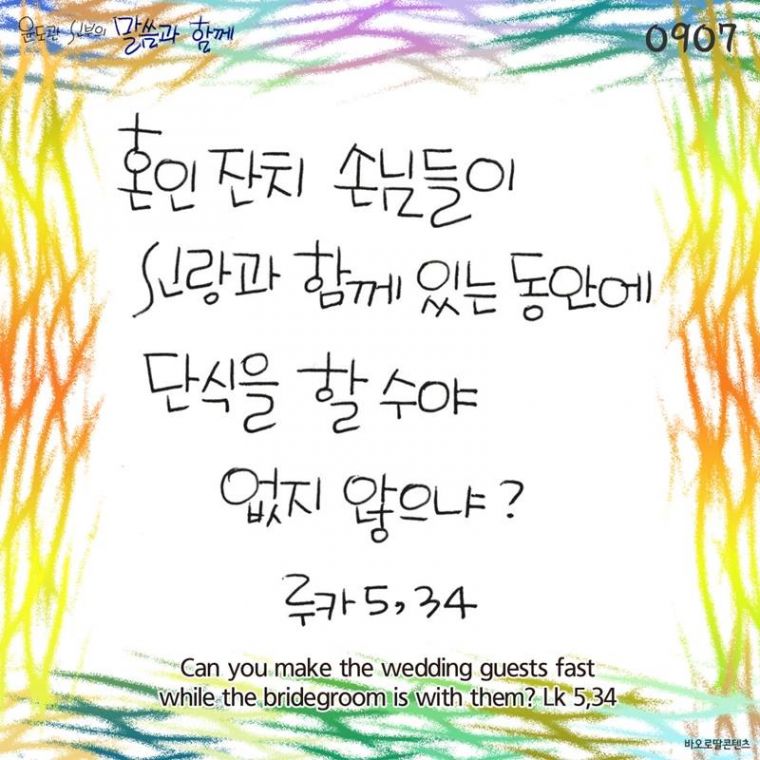 윤도관 신부의 말씀과 함께
0907
혼인 잔치 손님들이
신랑과 함께 있는 동안에
단식을 할 수야
없지 않으냐?
루카 5,34
Can you make the wedding guests fast
while the bridegroom is with them? Lk 5,34
바오로딸콘텐츠